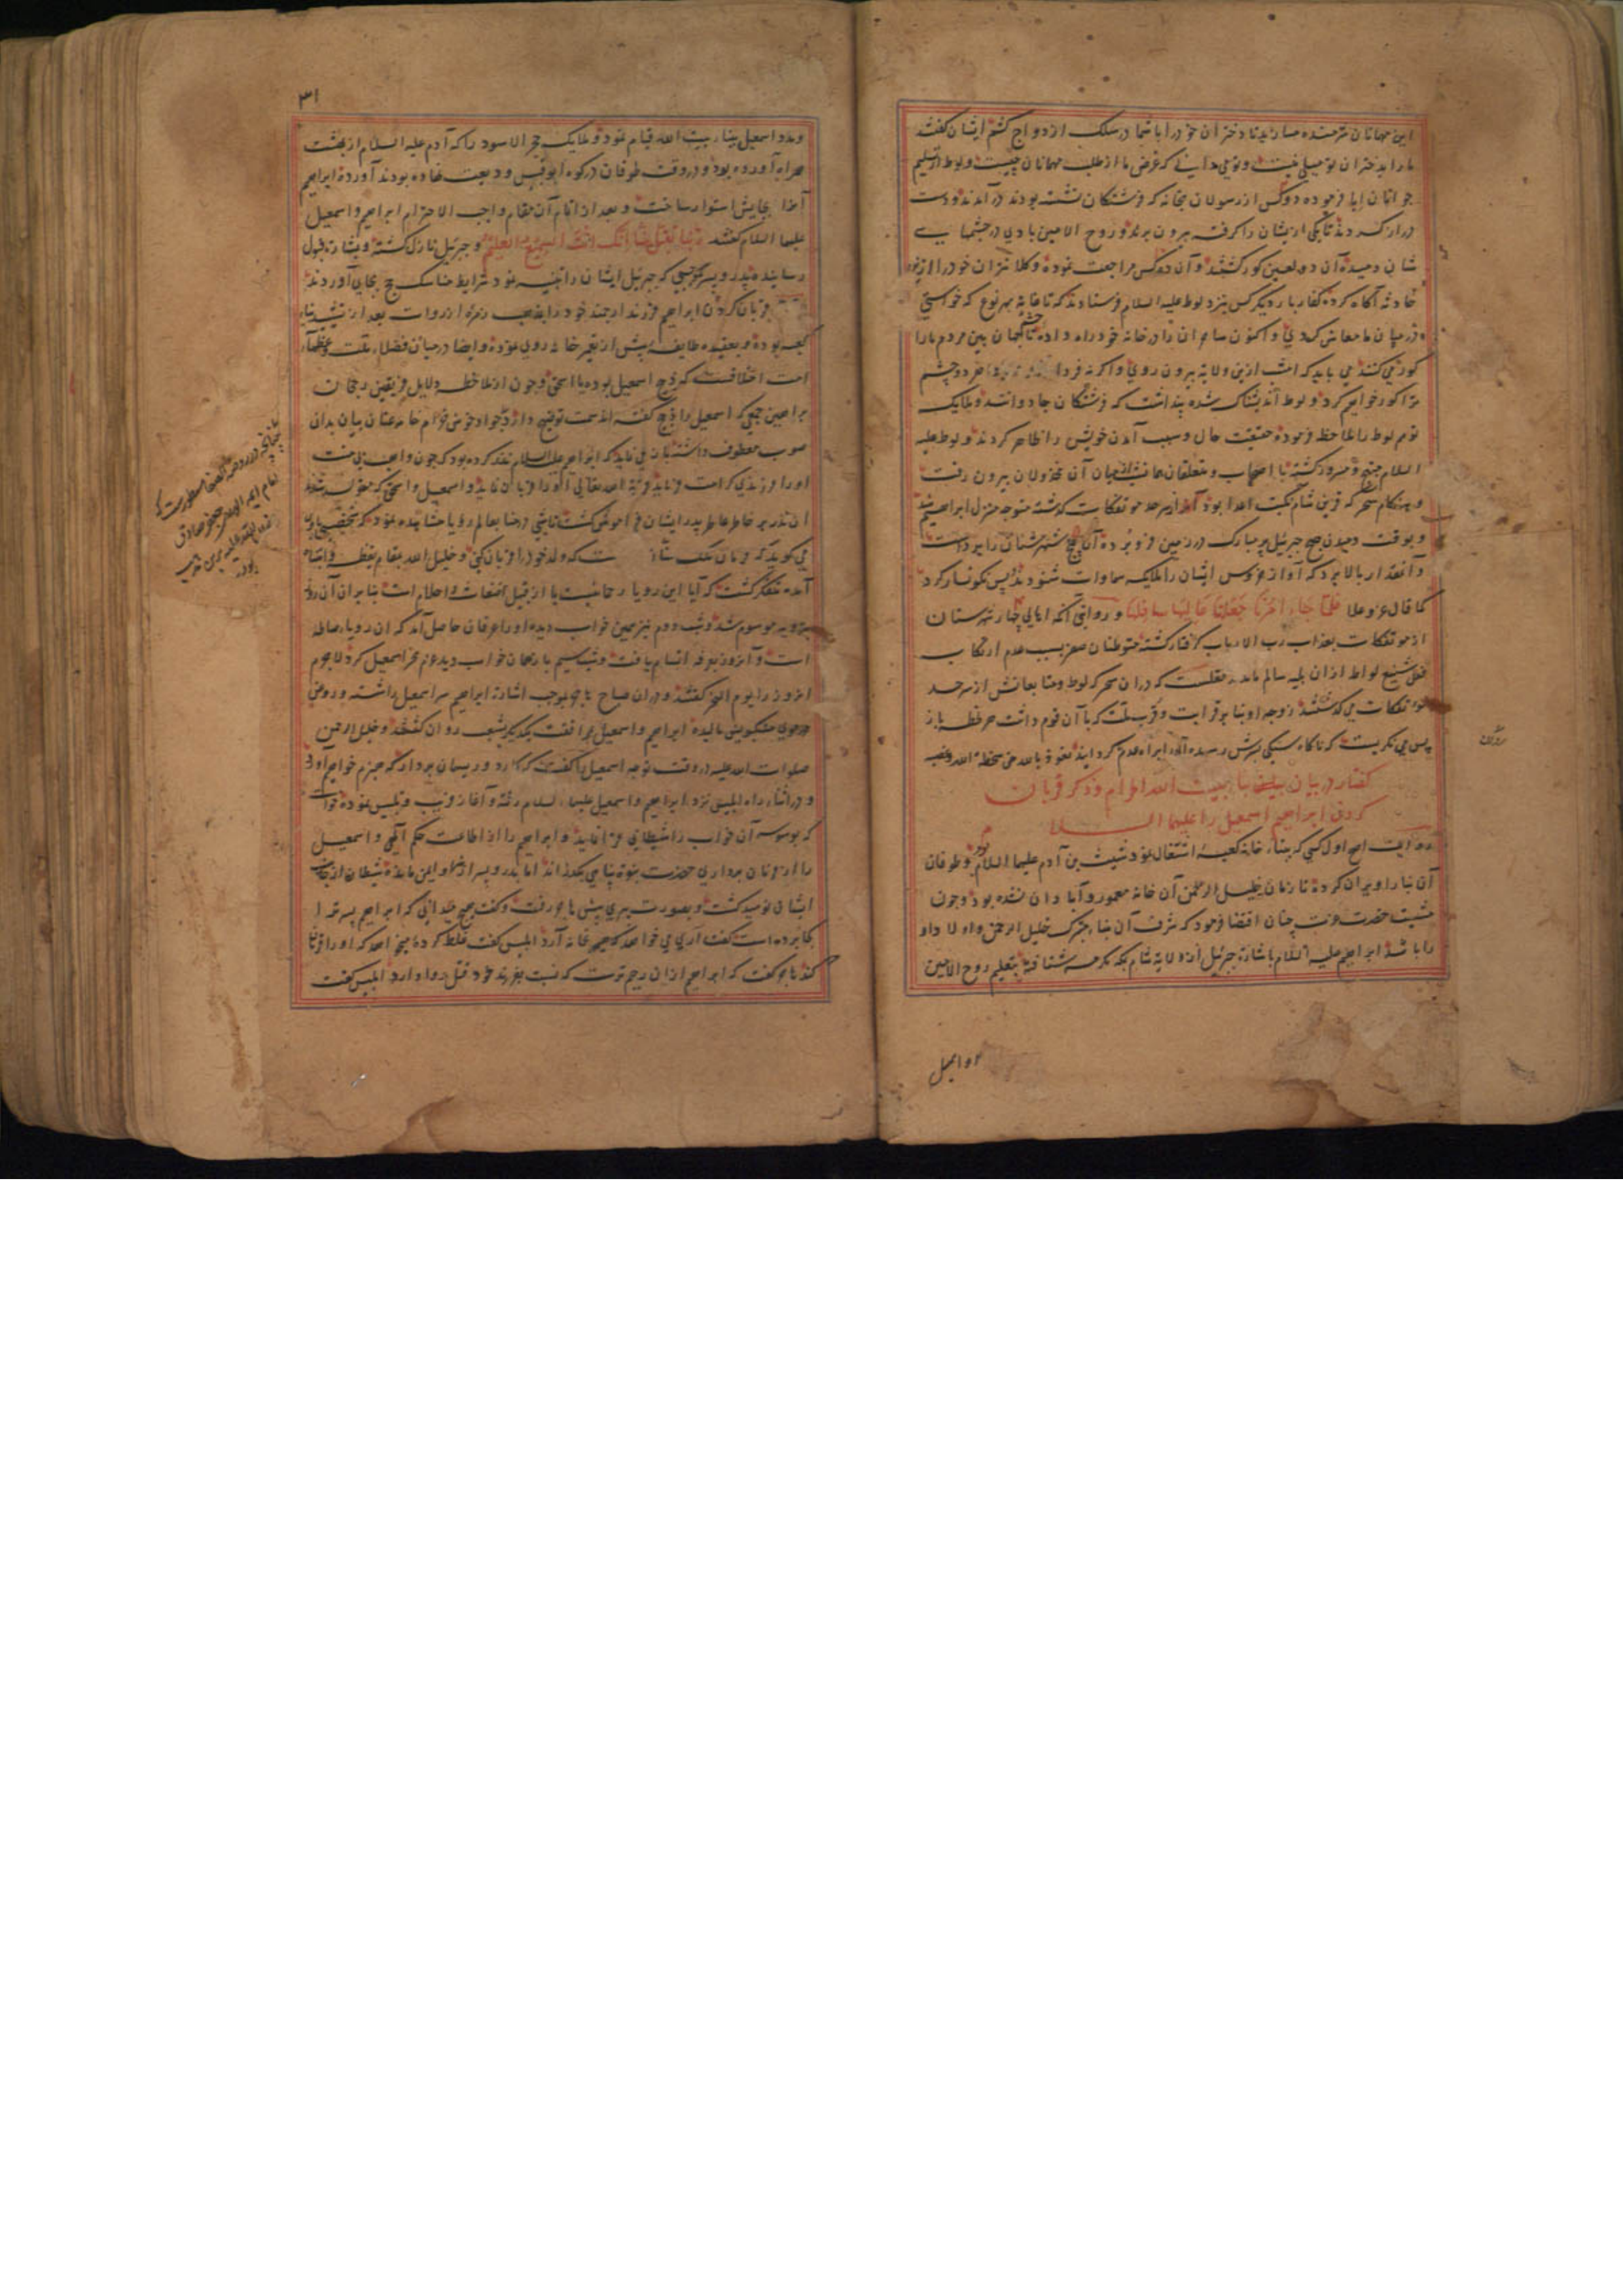 این مهمانان شرمنده مسازید تا دختران خود را با شما در سلک ازدواج کشم ایشان گفتند
ما را بدختران تو میلی نیست و تو می دانی که غرض ما از طلب مهمانان چیست و لوط از تسلیم
جوانان ابا فرموده دو کس از رسولان بخانه که فرشتگان نشسته بودند در آمدند و دست
دراز کردند تا یکی از ایشان را گرفته بیرون برند و روح الامین بادی در چشمهای
شان دمیده آن دو لعین کور گشتند و آن دو کس مراجعت نموده وکلا نتران خود را از
حادثه آگاه کرده کفار بار دیگر کس نزد لوط علیه السلام فرستادند که تا غایة بهر نوع که خواستی
در میان ما معاش کردی و اکنون ساحران را در خانه خود راه داده تا چشمهای مردم ما را
کور می کنند می باید که امشب ازین ولایة بیرون روی و اگر نه فردا هر دو چشم
ترا کور خواهیم کرد و لوط اندیشناک شده پنداشت که فرشتگان جادو اند و ملایک
توهم لوط را ملاحظه فرموده حقیقت حال و سبب آمدن خویش را ظاهر کردند و لوط علیه
السلام مسرور گشته با اصحاب و متعلقان همان شب از میان آن مخذولان بیرون رفت
و هنگام سحر که قرین شام نکبت اعدا بود از سرحد موتفکات گذشته متوجه منزل ابراهیم شد
و بوقت دمیدن صبح جبرئیل پر مبارک در زمین فرو برده آن پنج شهرستان را برداشت
و آنقدار بالا برد که آواز خروس ایشان را ملایکه سماوات شنودند پس نگونسار کرد
کما قال عز و علا فلما جاء امرنا جعلنا عالیها سافلها و روایتی آنکه اهالی چهار شهرستان
از موتفکات بعذاب رب الارباب گرفتار گشته متوطنان صعر بسبب عدم ارتکاب
فعل شنیع لواط ازان بلیه سالم ماندند نقلست که در ان سحر که لوط و متابعانش از سرحد
موتفکات می گذشتند زوجه او بنا بر قرابت و قرب ملت که با آن قوم داشت هر لحظه باز
پس می نگریست که ناگاه سنگی بسرش رسیده آورا براه عدم گردانید نعوذ بالله من سخط الله و غضبه
گفتار در بیان بنای بیت الله الحرام و ذکر قربان
کردن ابراهیم اسمعیل را علیهما السلام
روایت اصح اول کسی که ببناء خانه کعبه اشتغال نمود شیث بن آدم علیهما السلام بود و طوفان
آن بنا را ویران کرده تا زمان خلیل الرحمن آن خانه معمور و آبادان نشده بود و چون
مشیت حضرت عزت چنان اقتضا فرمود که شرف آن بناء متبرک خلیل الرحمن و اولاد او
را باشد ابراهیم علیه السلام باشارة جبرئیل از ولایة شام بمکه مکرمه شتافته بتعلیم روح الامین
و مدد اسمعیل
۳۱
و مدد اسمعیل ببناء بیت الله قیام نمود و ملایک حجر الاسود را که آدم علیه السلام از بهشت
همراه آورده بود و در وقت طوفان در کوه ابو قبیس ودیعت نهاده بودند آورده ابراهیم
آنرا بجایش استوار ساخت و بعد از اتمام آن مقام واجب الاحترام ابراهیم و اسمعیل
علیهما السلام گفتند ربنا تقبل منا انک انت السمیع العلیم و جبرئیل نازل گشته و بشارة قبول
رسانیده پدر و پسر بموجبی که جبرئیل ایشان را تنبیه نمود شرایط مناسک حج بجای آوردند
قربان کردن ابراهیم فرزند ارجمند خود را بمذهب زمره از روات بعد از تشیید بناء
کعبه بوده و بعقیده طایفه پیش از تعمیر خانه روی نموده و ایضا در میان فضلاء ملت و عظماء
امت اختلافست که ذبیح اسمعیل بوده یا اسحق و چون از ملاحظه دلایل فریقین رجحان
براهین جمعی که اسمعیل را ذبیح گفته اند سمت توضیح دارد جواد خوش خرام خامه عنان بیان بدان
صوب معطوف داشته بیان می نماید که ابراهیم علیه السلام نذر کرده بود که چون واهب بی منت
او را فرزندی کرامت فرماید قربة الله تعالی او را قربان نماید و اسمعیل و اسحق که متولد شدند
آن نذر بر خاطر عاطر پدر ایشان فراموش گشت تا شبی در منا بعالم رؤیا مشاهده نمود که شخصی باوی
می گوید که فرمان ملک است که ولد خود را قربان کنی و خلیل الله بمقام یقظه و انتباه
آمده متفکر گشت که آیا این رویا رحمانیست یا از قبیل اضغاث و احلام است بنا بران آن روز
بترویه موسوم شد و شب دوم نیز همین خواب دیده او را عرفان حاصل آمد که ان رویاء صالحه
است و آن روز بعرفه اتسام یافت و شب سیم باز همان خواب دید عزم نحر اسمعیل کرد لا جرم
انروز را یوم النحر گفتند و در ان صباح هاجر بموجب اشارة ابراهیم سر اسمعیل را شسته و روغن
در موی مشکبویش مالیده ابراهیم و اسمعیل بمرافقت یکدیگر بشعب روان گشتند و خلیل الرحمن
صلوات الله علیه در وقت توجه اسمعیل را گفت که کارد و ریسمان بردار که هیزم خواهم آورد
و در اثناء راه ابلیس نزد ابراهیم و اسمعیل علیهما السلام رفته و آغاز فریب و تلبیس نموده خواست
که بوسوسه آن خواب را شیطانی نماید و ابراهیم را از اطاعت حکم آلهی و اسمعیل
را از فرمان برداری حضرت نبوة پناهی بگذراند اما پدر و پسر از اغواء او ایمن مانده شیطان از جانب
ایشان نومید گشت و بصورت پیری پیش هاجر رفت و گفت هیچ میدانی که ابراهیم پسر ترا
کجا برده است گفت آری می خواهد که هیمه بخانه آرد ابلیس گفت غلط کرده میخواهد که او را قربان
کند هاجر گفت که ابراهیم ازان رحیم ترست که نسبت بفرزند خود قتل روا دارد ابلیس گفت
چنانچه در روضة الصفا مسطورست که
امام جعفر صادق